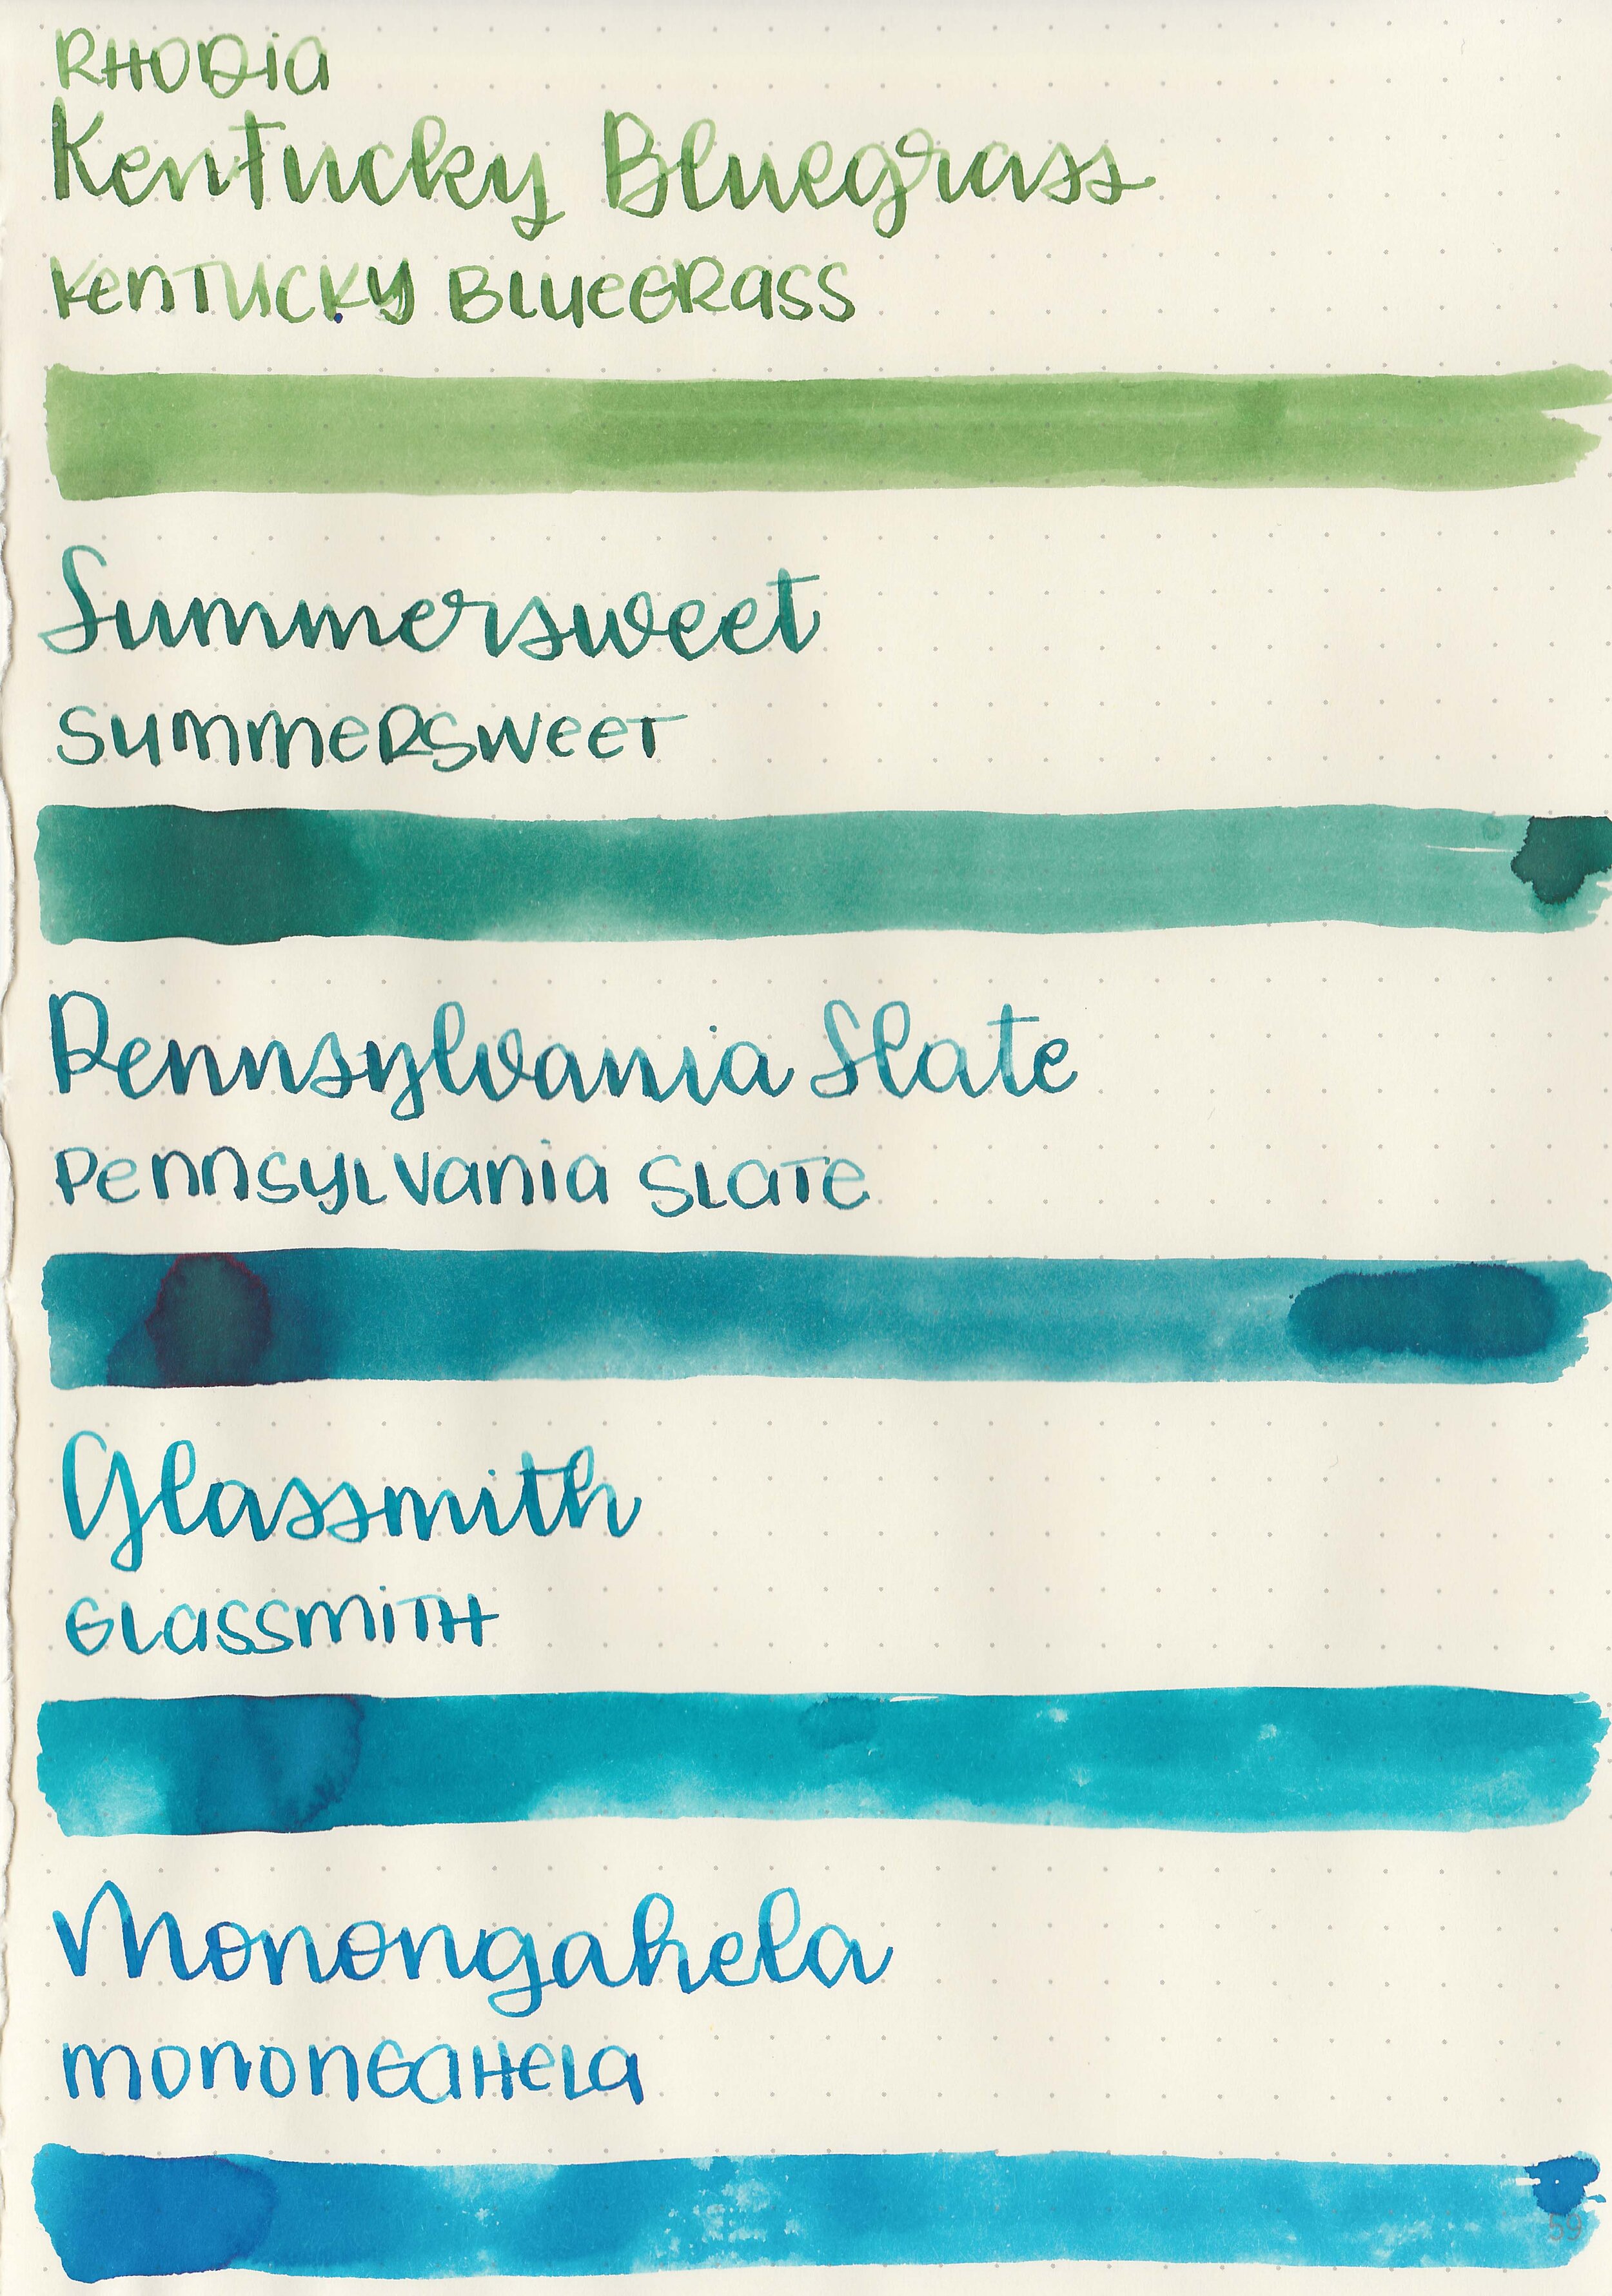 RHODia
Kentucky Bluegrass
KenTUCKY BLueGRaSS
Summersweet
SummeRSweeT
Pennsylvania Slate
PennSYLVania SLaTe
Glassmith
GLaSSmiTH
Monongahela
mononGaHeLa
59